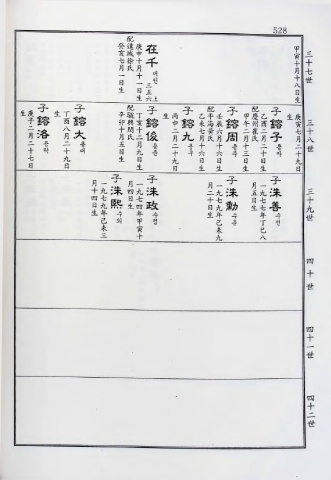 528
三十七世
甲寅十月十八日生
在千
재천
三五六上
庚申十月十一日生
配達城徐氏
癸亥七月一日生
三十八世
庚寅七月二十九日生
子鎔子
용자
乙酉二月二十日生
配慶州崔氏
甲午二月十三日生
子鎔周
용주
壬辰六月十六日生
配平海黃氏
己未七月十六日生
子鎔九
용구
丙申二月二十九日生
子鎔俊
용준
丁亥十二月九日生
配驪興閔氏
辛卯十月五日生
子鎔大
용대
丁酉八月二十九日生
子鎔洛
용락
庚子二月二十七日生
三十九世
子洙善
수선
一九七七年丁巳八月五日生
子洙勳
수훈
一九七九年己未九月二十日生
子洙政
수정
一九七四年甲寅十月四日生
子洙熙
수희
一九七九年己未三月十四日生
四十世
四十一世
四十二世